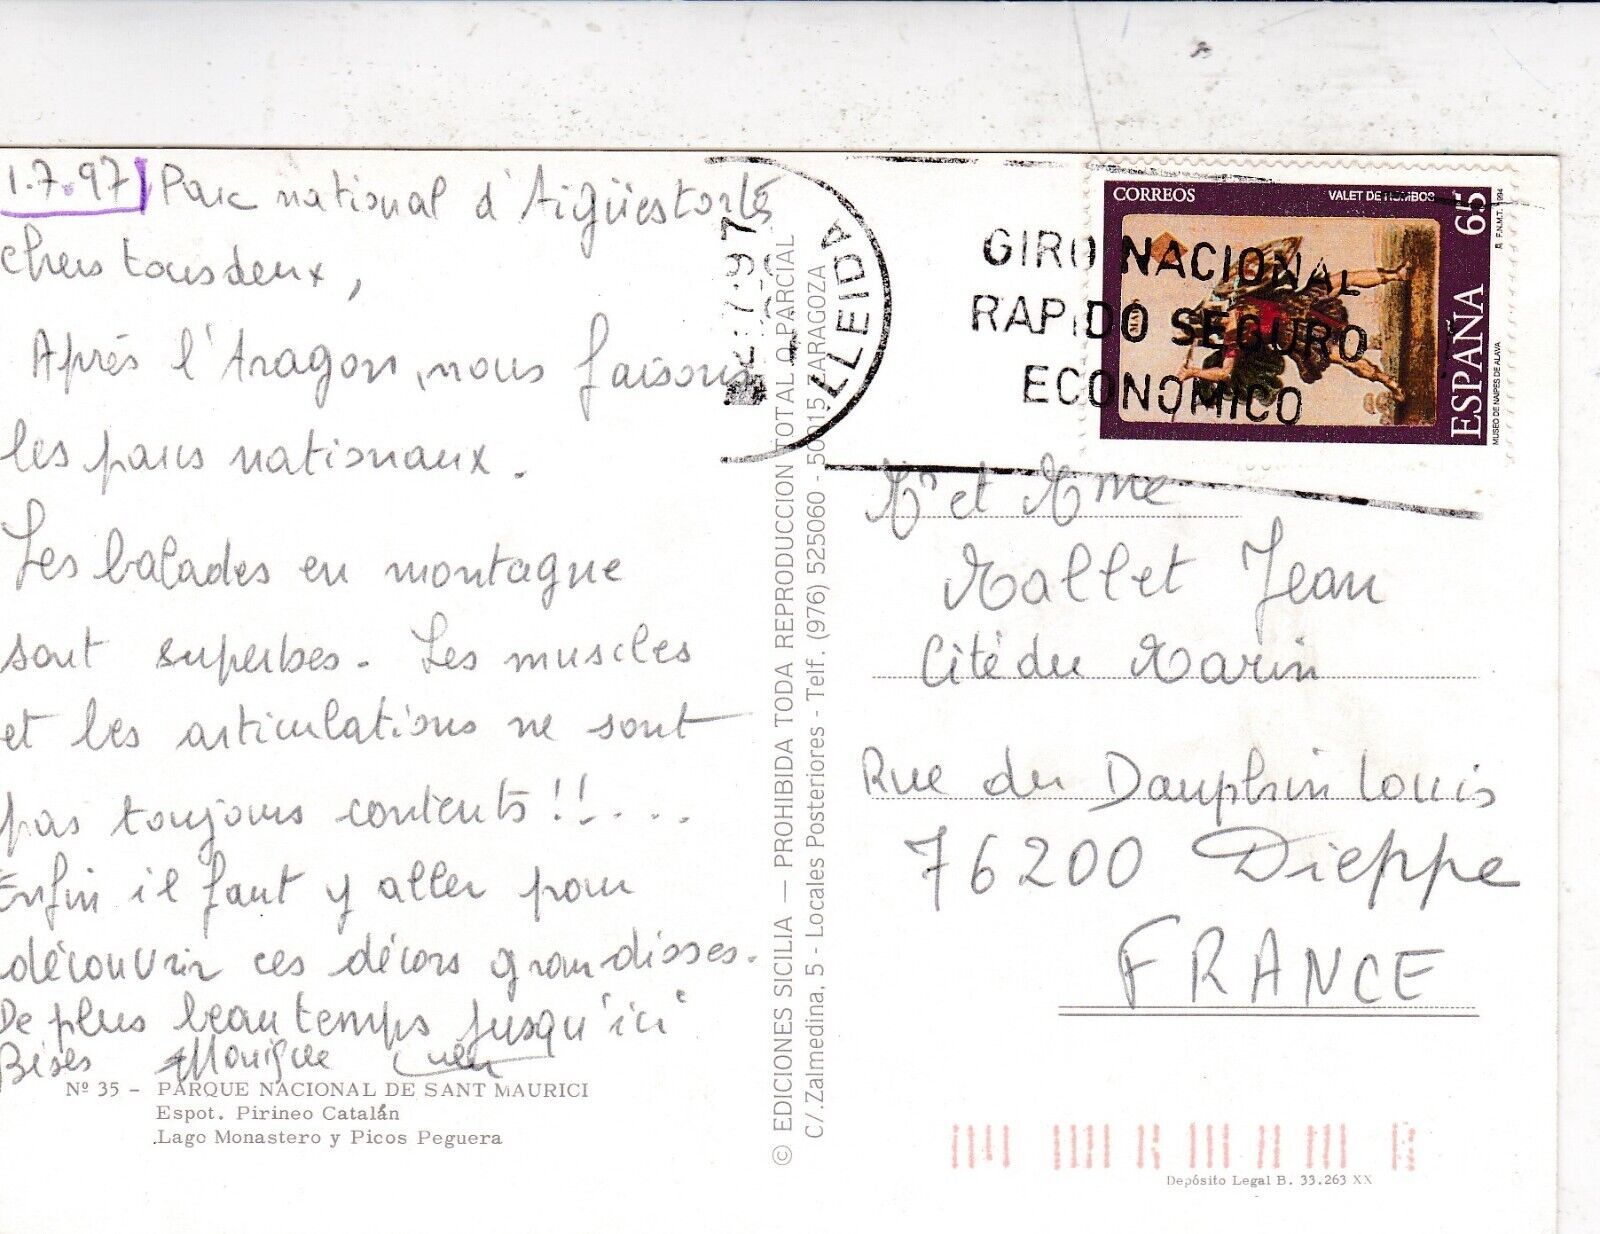 1.7.97 Parc national d'Aigüestortes
Chers tous deux,
Après l'Aragon, nous faisons
les parcs nationaux.
Les balades en montagne
sont superbes. Les muscles
et les articulations ne sont
pas toujours contents !!....
Enfin il faut y aller pour
découvrir ces décors grandioses.
De plus beau temps jusqu'ici
Bises Monique
Nº 35 - PARQUE NACIONAL DE SANT MAURICI
Espot. Pirineo Catalán
Lago Monastero y Picos Peguera
© EDICIONES SICILIA — PROHIBIDA TODA REPRODUCCION TOTAL O PARCIAL
C/. Zalmedina, 5 - Locales Posteriores - Telf. (976) 525060 - 50015 ZARAGOZA
2 7 97
LLEIDA
GIRO NACIONAL
RAPIDO SEGURO
ECONOMICO
CORREOS
VALET DE ROMBOS
65
ESPAÑA
F.N.M.T. 1994
MUSEO DE NAIPES DE ALAVA
Mr et Mme
Mallet Jean
Cité du Marin
Rue du Dauphin Louis
76200 Dieppe
FRANCE
Depósito Legal B. 33.263 XX